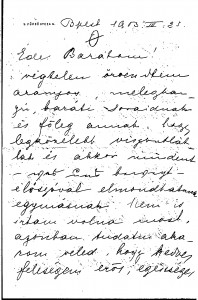 Bpest 1903. III. 25.
Édes Barátom!
végtelen örvendtem
aranyos, melegban-
gú, baráti soraidnak
és főleg annak, hogy
legközelebb viszontlát-
lak és akkor mindent
elmondhatunk
egymásnak. Nem is
írtam volna most,
azonban tudatni aka-
rom veled, hogy kedves
feleségem erős, egészséges